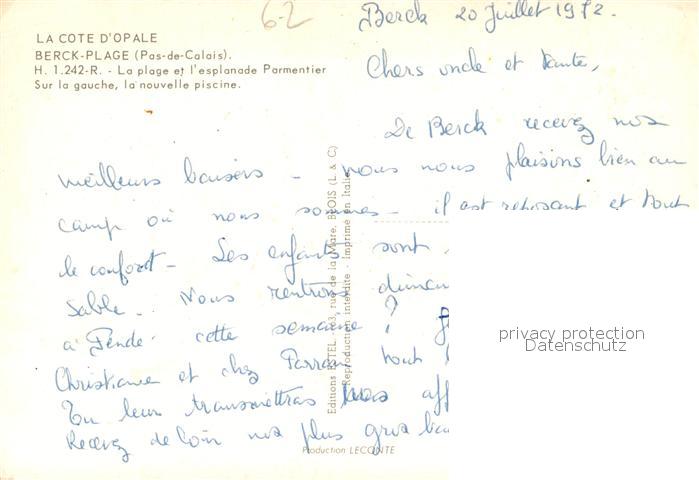 62
LA COTE D'OPALE
BERCK-PLAGE (Pas-de-Calais).
H. 1.242-R. - La plage et l'esplanade Parmentier
Sur la gauche, la nouvelle piscine.
Berck 20 Juillet 1972.
Chers oncle et tante,
De Berck recevez nos
meilleurs baisers - nous nous plaisons bien au
camp où nous sommes - il est reposant et tout
le confort - Les enfants sont
sable. Nous rentrons diman
à Pendé cette semaine ?
Christiane et chez Parrain tout
Tu leur transmettras nos aff
Recevez de loin nos plus gros bai
Editions ESTEL, 63, rue de la Mare, BLOIS (L. & C)
Reproduction interdite - Imprimé en Italie
Production LECONTE
privacy protection
Datenschutz